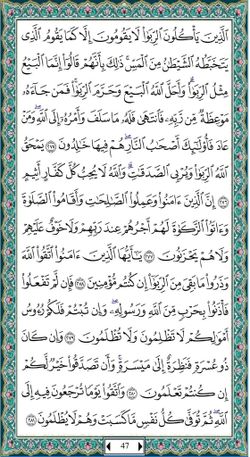 ٱلَّذِينَ يَأۡكُلُونَ ٱلرِّبَوٰاْ لَا يَقُومُونَ إِلَّا كَمَا يَقُومُ ٱلَّذِي
يَتَخَبَّطُهُ ٱلشَّيۡطَٰنُ مِنَ ٱلۡمَسِّۚ ذَٰلِكَ بِأَنَّهُمۡ قَالُوٓاْ إِنَّمَا ٱلۡبَيۡعُ
مِثۡلُ ٱلرِّبَوٰاْۗ وَأَحَلَّ ٱللَّهُ ٱلۡبَيۡعَ وَحَرَّمَ ٱلرِّبَوٰاْۚ فَمَن جَآءَهُۥ
مَوۡعِظَةٞ مِّن رَّبِّهِۦ فَٱنتَهَىٰ فَلَهُۥ مَا سَلَفَ وَأَمۡرُهُۥٓ إِلَى ٱللَّهِۖ وَمَنۡ
عَادَ فَأُوْلَٰٓئِكَ أَصۡحَٰبُ ٱلنَّارِۖ هُمۡ فِيهَا خَٰلِدُونَ ٢٧٥ يَمۡحَقُ
ٱللَّهُ ٱلرِّبَوٰاْ وَيُرۡبِي ٱلصَّدَقَٰتِۗ وَٱللَّهُ لَا يُحِبُّ كُلَّ كَفَّارٍ أَثِيمٍ
٢٧٦ إِنَّ ٱلَّذِينَ ءَامَنُواْ وَعَمِلُواْ ٱلصَّٰلِحَٰتِ وَأَقَامُواْ ٱلصَّلَوٰةَ
وَءَاتَوُاْ ٱلزَّكَوٰةَ لَهُمۡ أَجۡرُهُمۡ عِندَ رَبِّهِمۡ وَلَا خَوۡفٌ عَلَيۡهِمۡ
وَلَا هُمۡ يَحۡزَنُونَ ٢٧٧ يَٰٓأَيُّهَا ٱلَّذِينَ ءَامَنُواْ ٱتَّقُواْ ٱللَّهَ
وَذَرُواْ مَا بَقِيَ مِنَ ٱلرِّبَوٰٓاْ إِن كُنتُم مُّؤۡمِنِينَ ٢٧٨ فَإِن لَّمۡ تَفۡعَلُواْ
فَأۡذَنُواْ بِحَرۡبٖ مِّنَ ٱللَّهِ وَرَسُولِهِۦۖ وَإِن تُبۡتُمۡ فَلَكُمۡ رُءُوسُ
أَمۡوَٰلِكُمۡ لَا تَظۡلِمُونَ وَلَا تُظۡلَمُونَ ٢٧٩ وَإِن كَانَ
ذُو عُسۡرَةٖ فَنَظِرَةٌ إِلَىٰ مَيۡسَرَةٖۚ وَأَن تَصَدَّقُواْ خَيۡرٞ لَّكُمۡ
إِن كُنتُمۡ تَعۡلَمُونَ ٢٨٠ وَٱتَّقُواْ يَوۡمٗا تُرۡجَعُونَ فِيهِ إِلَى
ٱللَّهِۖ ثُمَّ تُوَفَّىٰ كُلُّ نَفۡسٖ مَّا كَسَبَتۡ وَهُمۡ لَا يُظۡلَمُونَ ٢٨١
47